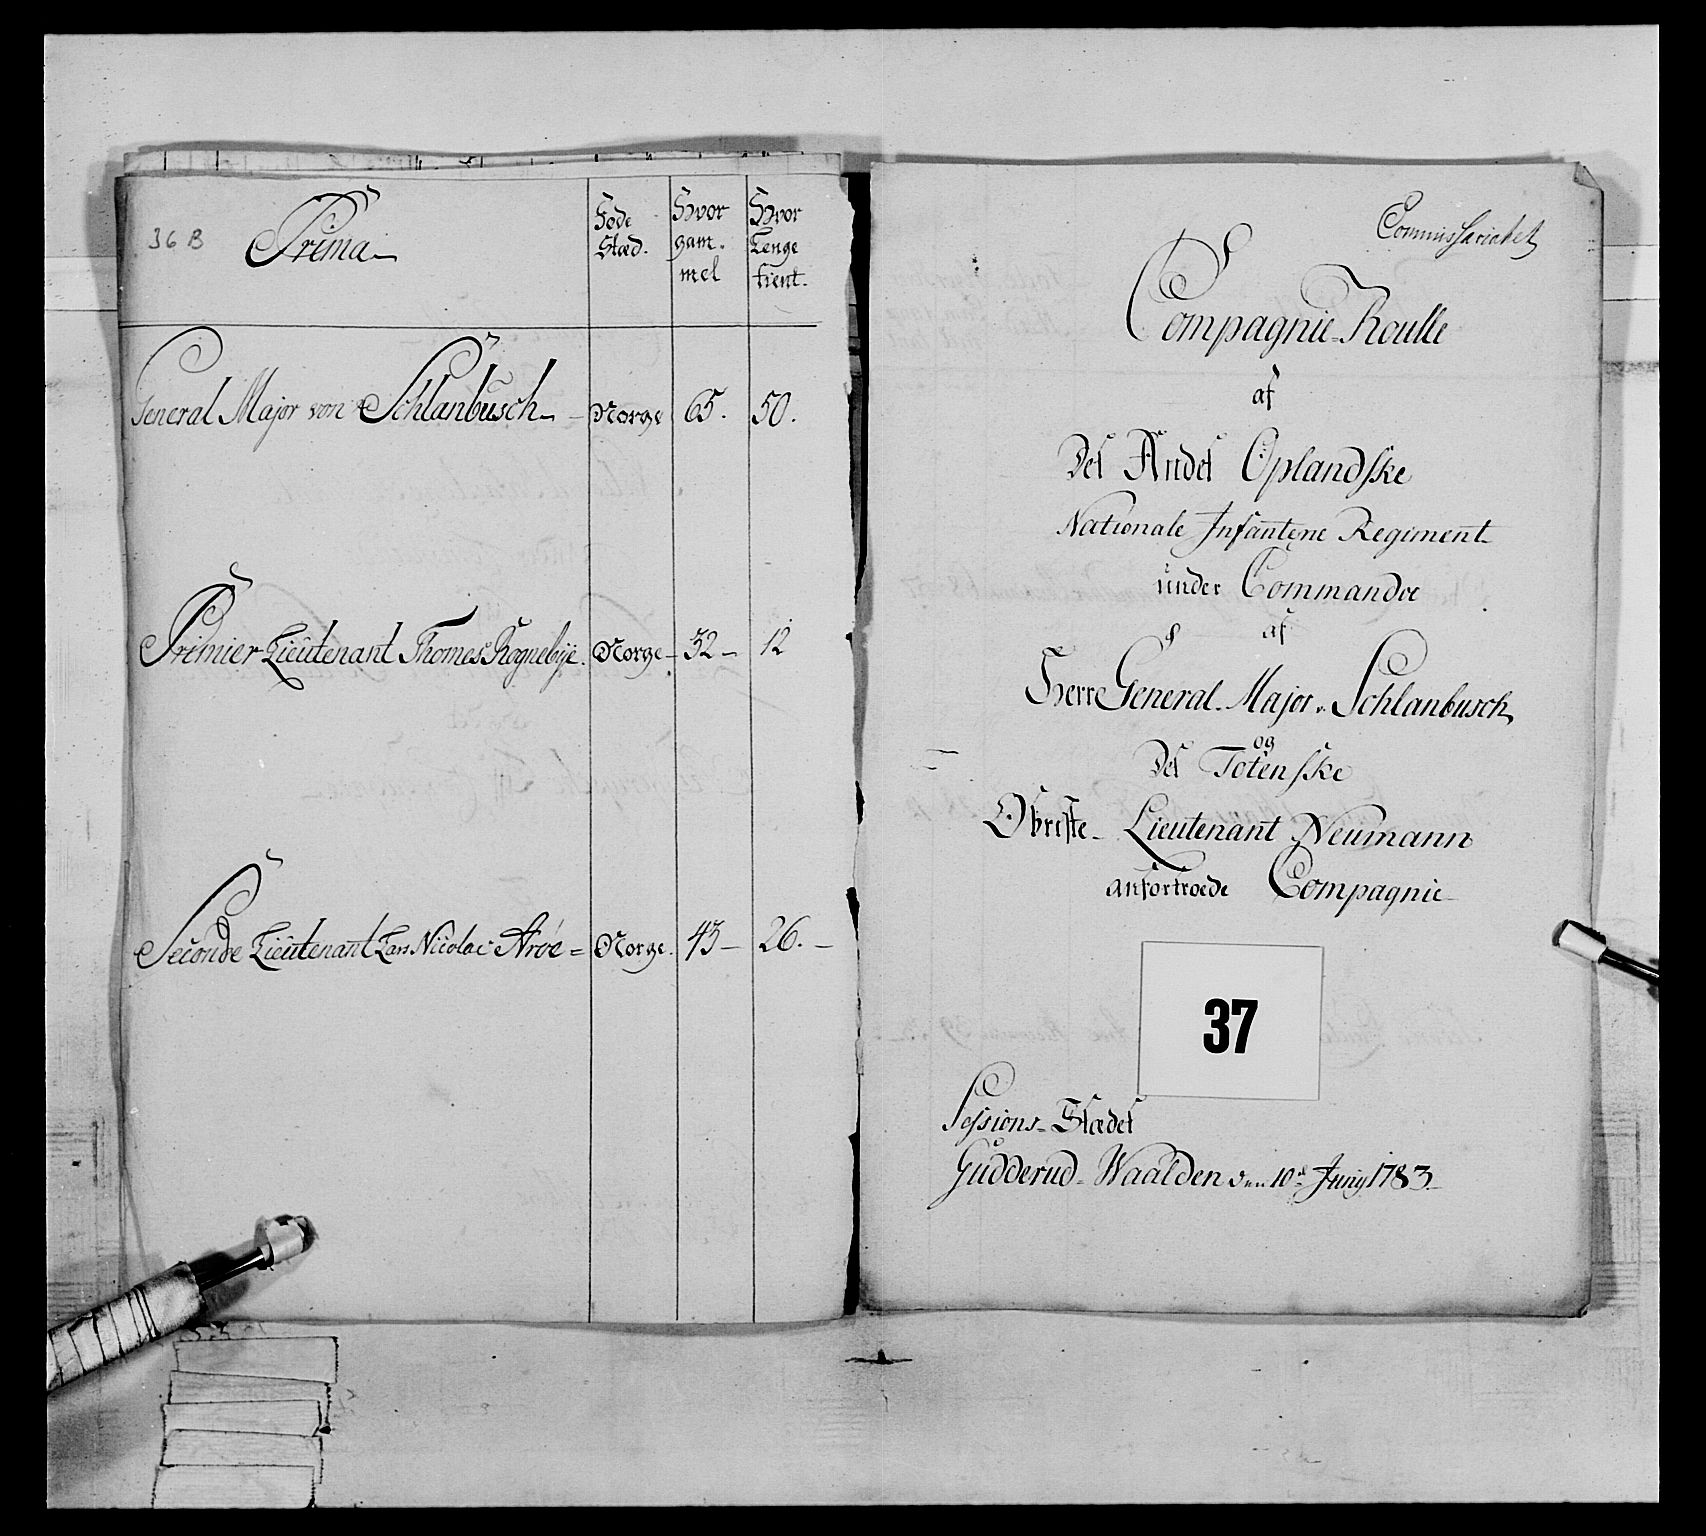 36 B
Prima
Føde Stæd.
Hvor gam-mel
Hvor Lenge tient.
General Major von Schlanbusch Norge 65. 50.
Primier Lieutenant Thomes Rognebye. Norge 32 12
Seconde Lieutenant Lars Nicolai Arøe = Norge. 43 26.
Commissariatet
Compagnie-Roulle
af
Det Andet Oplandske
Nationale Infanterie Regiment
under Commando
af
Herr General-Major v. Schlanbusch
og
Det Totenske
Obriste-Lieutenant Neumann
anfortroede Compagnie
37
Sessions-Stædet
Gudderud-Waalden den 10de Junij 1783